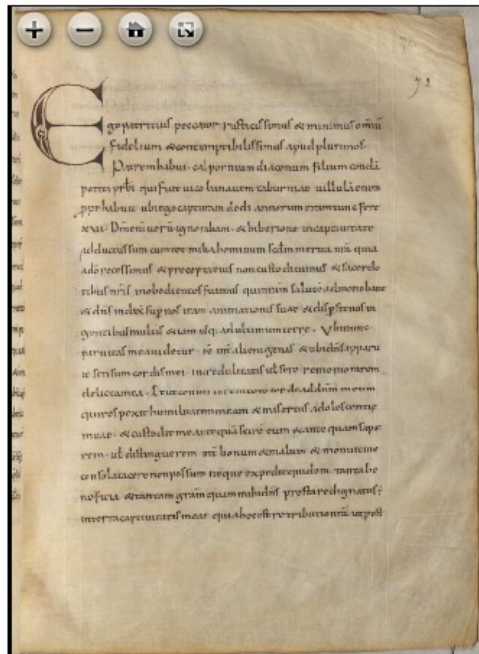 72
Ego patricius peccator rusticissimus & minimus omniū
fidelium & contemptibilissimus apud plurimos.
Patrem habui calpornium diaconum filium
potiti qui fuit uico
habuit ubi ego capturam dedi annorum eram tunc fere
xui ignorabam & hiberione in captiuitate
adductus sum cum tot milia hominum merita quia
recessimus & precepta eius non custodiuimus & sacerdo
tibus inobedientes fuimus qui salutē admonebant
& induxit sup nos iram animationis suae & dispersit nos in
gentibus multis &iam usq; ad ultimum terre. Ubi nunc
paruitas mea uidetur. alienigenas & ubi
sensum cordis mei incredulitatis ut sero rememorarem
delicta mea. & ut conuerterem toto corde ad meum
qui respexit humilitatem meam & misertus adolescentie
meae. & custodit me antequā scirē eum & antequam sape
rem. distinguerem bonum & malum & muniuit me
consolatacere non possum neque expedit equidem. tanta be
neficia & tantam quam mihi prestare dignatus;
in terra captiuitatis meae quia hoc est retributio ut post